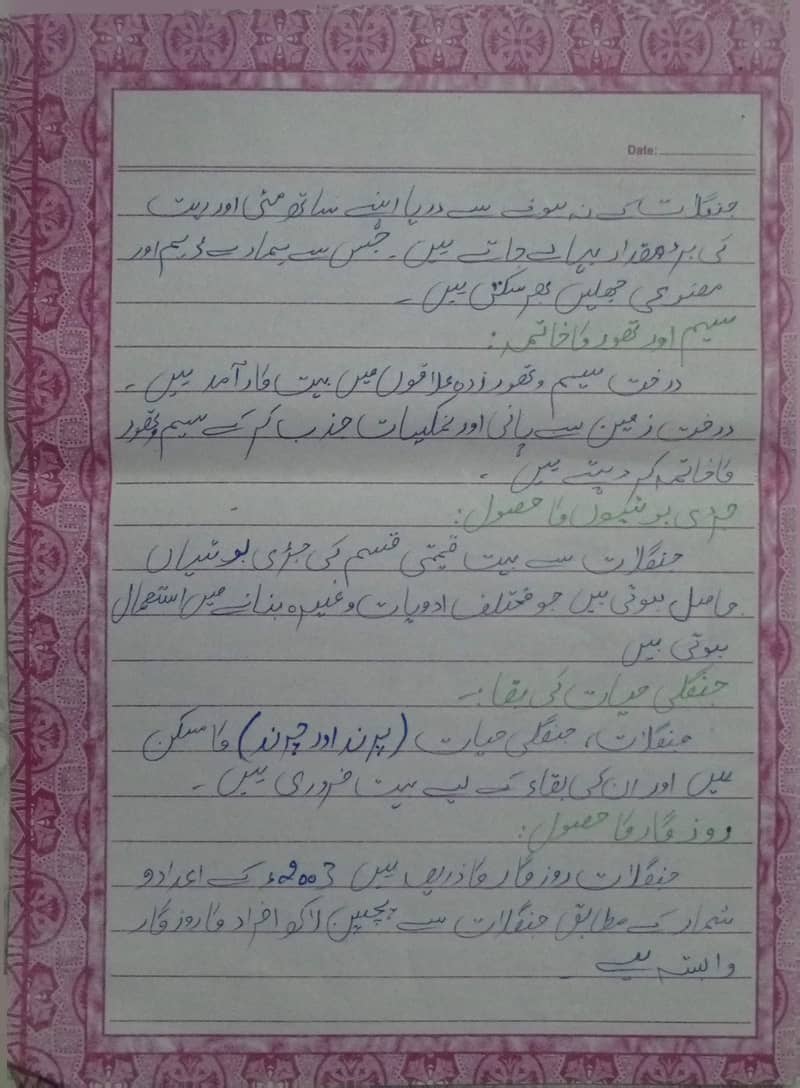 Date:
جنگلات کے نہ ہونے سے دریا اپنے ساتھ مٹی اور ریت
کی بڑی مقدار بہا لے جاتے ہیں۔ جس سے ہمارے ڈیم اور
مصنوعی جھیلیں بھر سکتی ہیں۔
سیم اور تھور کا خاتمہ:
درخت سیم و تھور زدہ علاقوں میں بہت کار آمد ہیں۔
درخت زمین سے پانی اور نمکیات جذب کر کے سیم و تھور
کا خاتمہ کر دیتے ہیں۔
جڑی بوٹیوں کا حصول:
جنگلات سے بہت قیمتی قسم کی جڑی بوٹیاں
حاصل ہوتی ہیں جو مختلف ادویات وغیرہ بنانے میں استعمال
ہوتی ہیں
جنگلی حیات کی بقا:-
جنگلات، جنگلی حیات (پرند اور چرند) کا مسکن
ہیں اور ان کی بقاء کے لیے بہت ضروری ہیں۔
روزگار کا حصول:
جنگلات روزگار کا ذریعہ ہیں 2003ء کے اعداد و
شمار کے مطابق جنگلات سے پچپن لاکھ افراد کا روزگار
وابستہ ہے